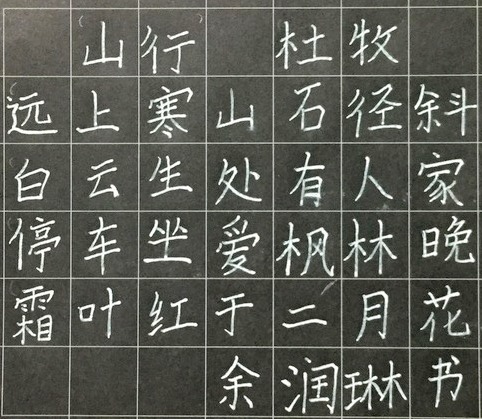 山行 杜牧
远上寒山石径斜
白云生处有人家
停车坐爱枫林晚
霜叶红于二月花
余润琳书